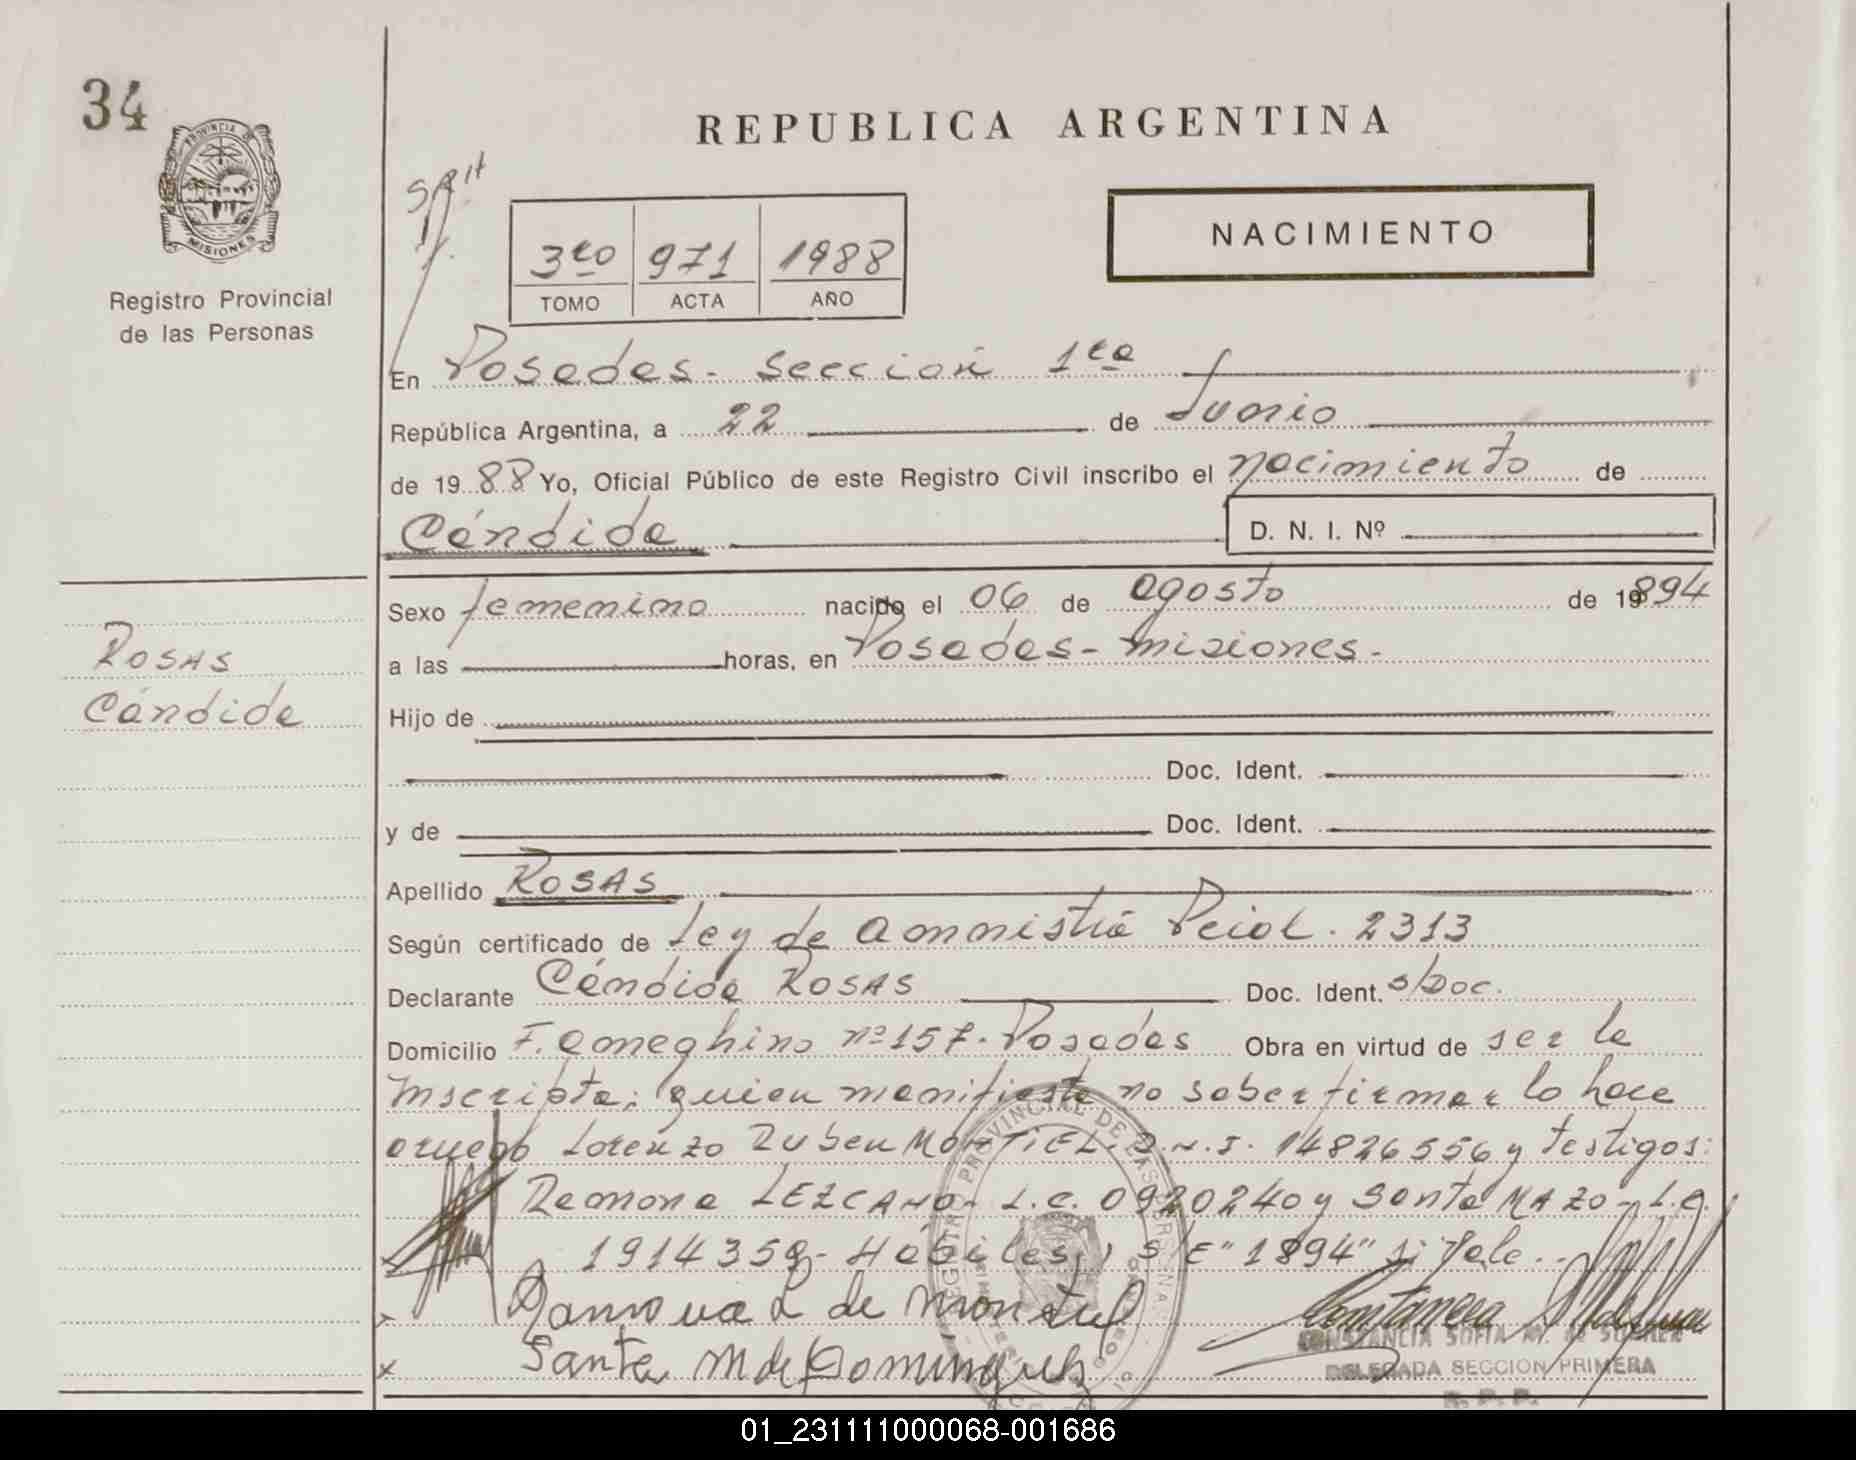 34
PROVINCIA DE
MISIONES
Registro Provincial
de las Personas
REPUBLICA ARGENTINA
3ro 971 1988
TOMO ACTA AÑO
NACIMIENTO
En Posadas - Sección 1ra
República Argentina, a 22 de Junio
de 1988 Yo, Oficial Público de este Registro Civil inscribo el nacimiento de
Cándida D. N. I. Nº
Sexo femenino nacido el 06 de agosto de 1894
a las horas, en Posadas - misiones -
Rosas
Cándida
Hijo de
Doc. Ident.
y de Doc. Ident.
Apellido Rosas
Según certificado de Ley de Amnistía Pcial. 2313
Declarante Cándida Rosas Doc. Ident. s/Doc.
Domicilio F. Ameghino nº 157. Posadas Obra en virtud de ser la
Inscripta; quien manifiesta no saber firmar lo hace
a ruego Lorenzo Ruben MONTIEL - D.N.I. 14826556 y testigos:
Ramona LEZCANO - L.C. 0920240 y Santa MAZO - L.C.
1914359 - Hábiles, S/E "1894" si Vale..
Ramona L de Montiel
Santa M de Dominguez
CONSTANCIA SOFIA M. de
DELEGADA SECCION PRIMERA
R. P. P.
REGISTRO PROVINCIAL DE LAS PERSONAS
01_231111000068-001686